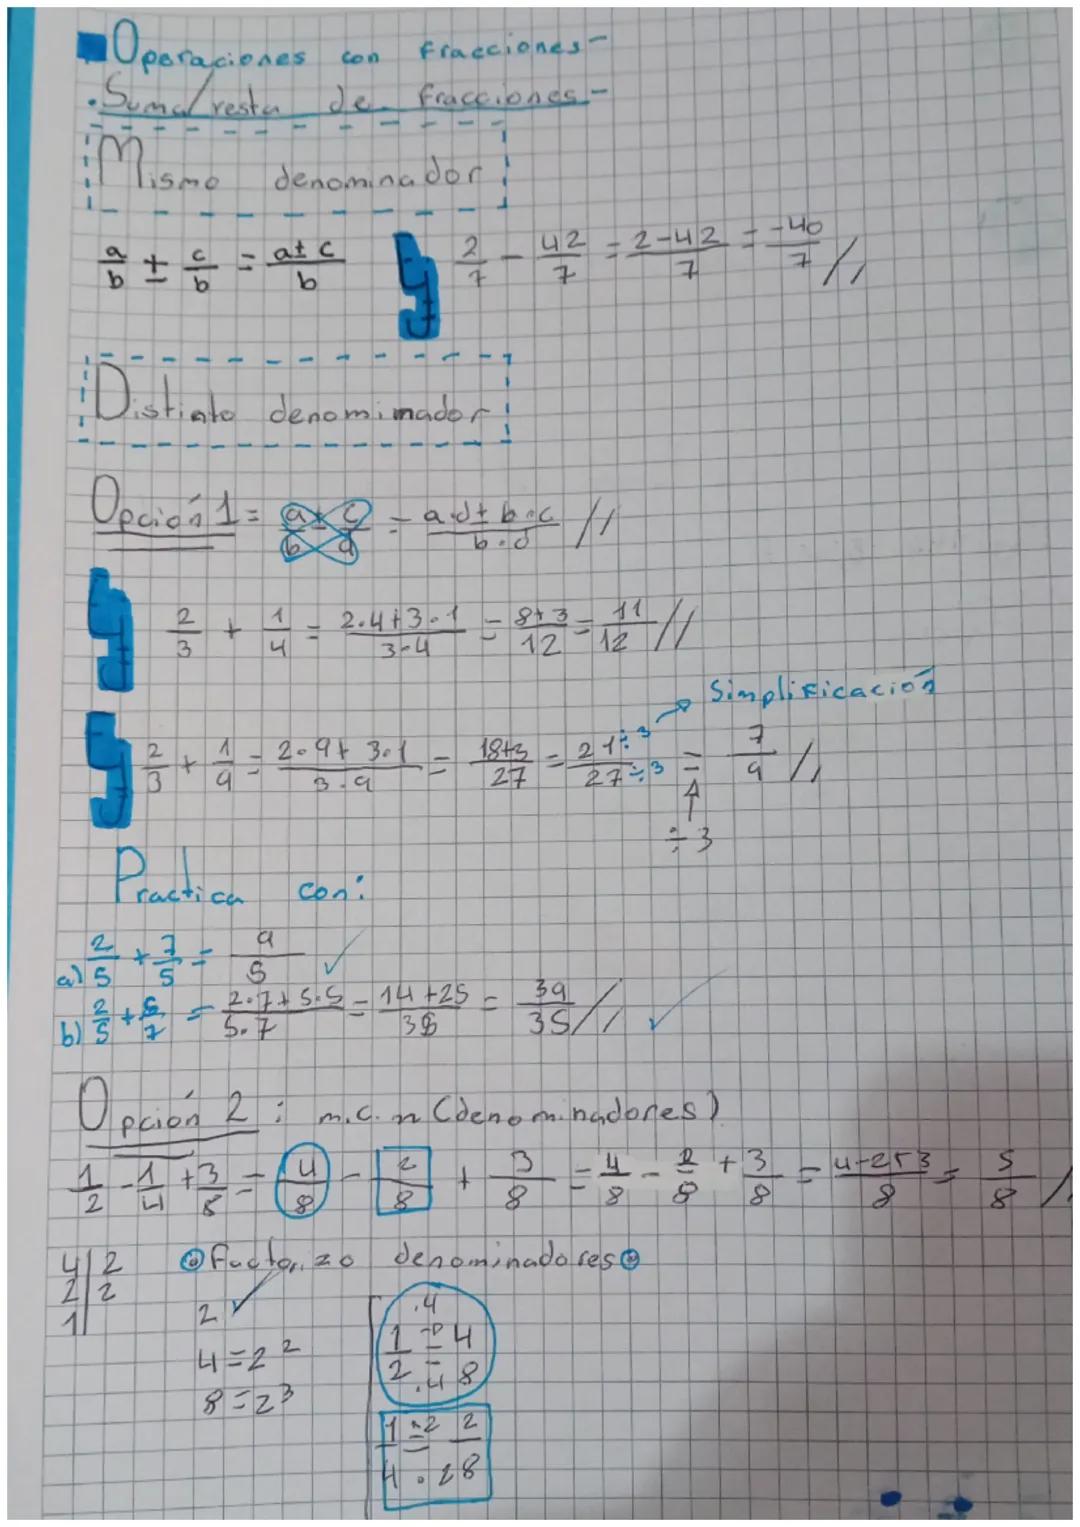 Operaciones con fracciones-
• Suma/resta de fracciones-
Mismo denominador
a/b ± c/b = a±c/b   2/7 - 42/7 = 2-42/7 = -40/7 //
Distinto denominador
Opción 1 = a/b ± c/d = a·d ± b·c/b·d //
ej 2/3 + 1/4 = 2·4+3·1/3·4 = 8+3/12 = 11/12 //
Simplificación
ej 2/3 + 1/9 = 2·9+3·1/3·9 = 18+3/27 = 21÷3/27÷3 = 7/9 //
÷3
Practica con:
a) 2/5 + 7/5 = 9/5 ✓
b) 2/5 + 5/7 = 2·7+5·5/5·7 = 14+25/35 = 39/35 // ✓
Opción 2: m.c.m (denominadores)
1/2 - 1/4 + 3/8 = 4/8 - 2/8 + 3/8 = 4/8 - 2/8 + 3/8 = 4-2+3/8 = 5/8 //
4|2 Factorizo denominadores
2|2 2 ✓
1|
4=2²
8=2³
·4
1/2 = 4/8
·4
1/4 = 2/8
·2
·2